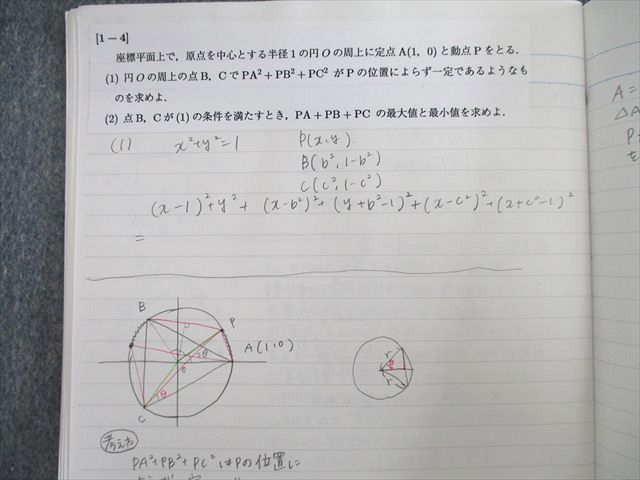 [1−4]
座標平面上で，原点を中心とする半径1の円Oの周上に定点A(1, 0)と動点Pをとる．
(1) 円Oの周上の点B, CでPA²+PB²+PC²がPの位置によらず一定であるようなも
のを求めよ．
(2) 点B, Cが(1)の条件を満たすとき，PA+PB+PCの最大値と最小値を求めよ．
(1) x²+y²=1 P(x,y).
B(b², 1-b²)
C(c², 1-c²)
(x-1)²+y²+(x-b²)²+(y+b²-1)²+(x-c²)²+(x+c²-1)²
=
B
P
2θ
A(1,0)
θ
C
r
r
考え方
PA²+PB²+PC²はPの位置に
A=